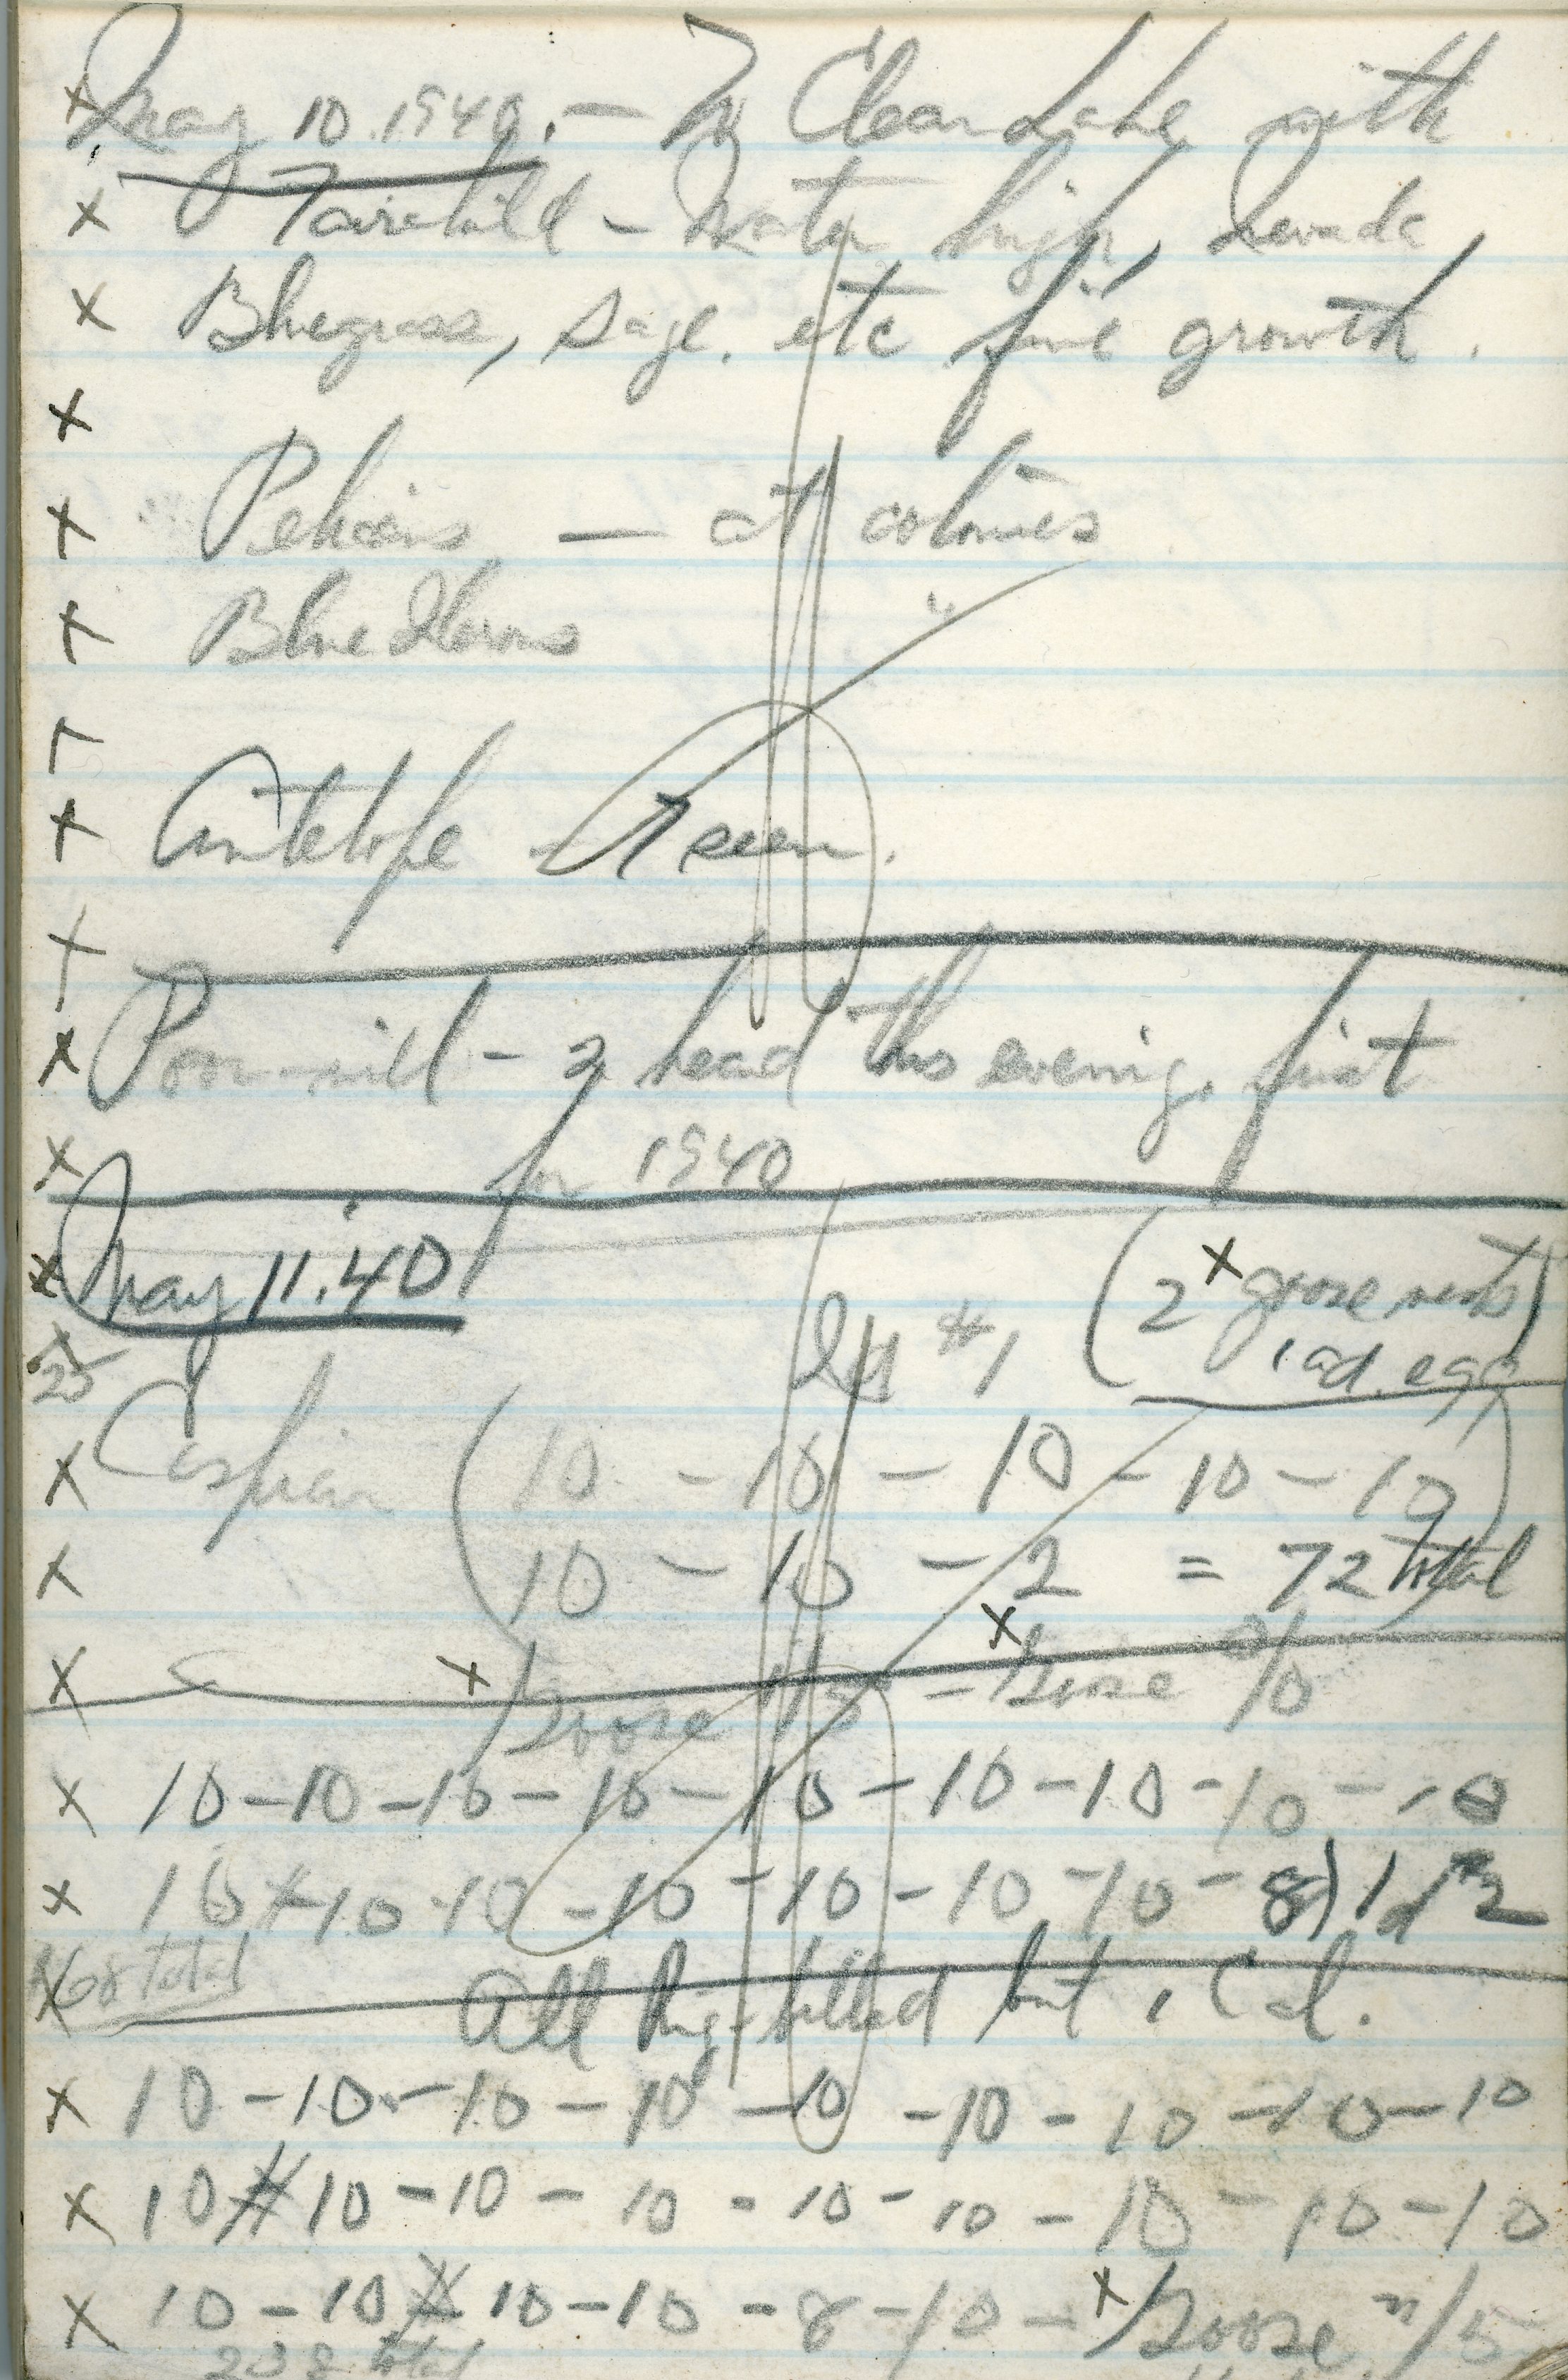 x May 10. 1940. — To Clear Lake with
x Fairchild - Water high, Nevada,
x Bluegrass, Sage, etc fine growth.
x
x Pelicans — at colonies
x Blue Herons "
x
x Antelope - 1 seen.
x
x Poor-will - 2 heard this evening. first
x for 1940
x May 11. 40 (2 x goose nests)
x #1 1 ad. egg
25
x Caspian (10 - 10 - 10 - 10 - 10)
x 10 - 10 - 2 = 72 total
x x Goose - x Goose
x 10 - 10 - 10 - 10 - 10 - 10 - 10 - 10 - 10
x 10 - 10 - 10 - 10 - 10 - 10 - 10 - 8) #2
x 168 total All Ring-billed but 1 Cal.
x 10 - 10 - 10 - 10 - 10 - 10 - 10 - 10 - 10
x 10 # 10 - 10 - 10 - 10 - 10 - 10 - 10 - 10
x 10 - 10 10 - 10 - 8 - 10 - x Goose n/5
238 total